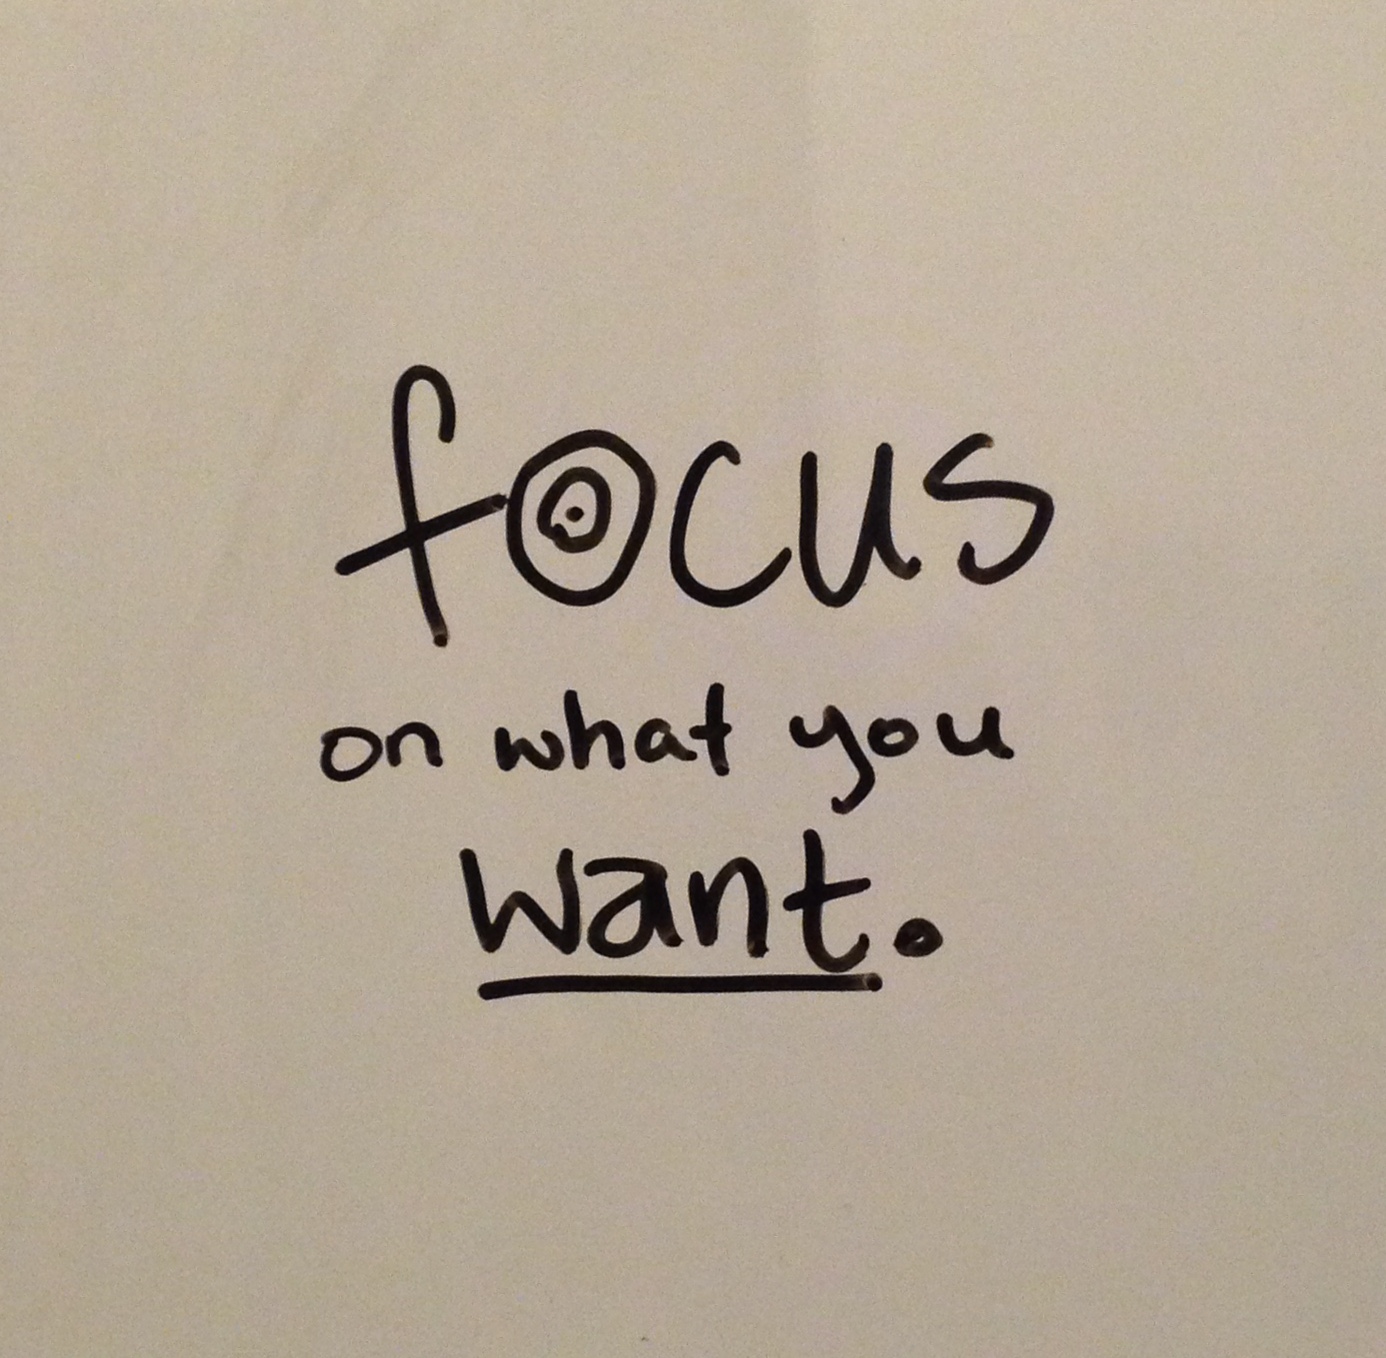 focus
on what you
want.